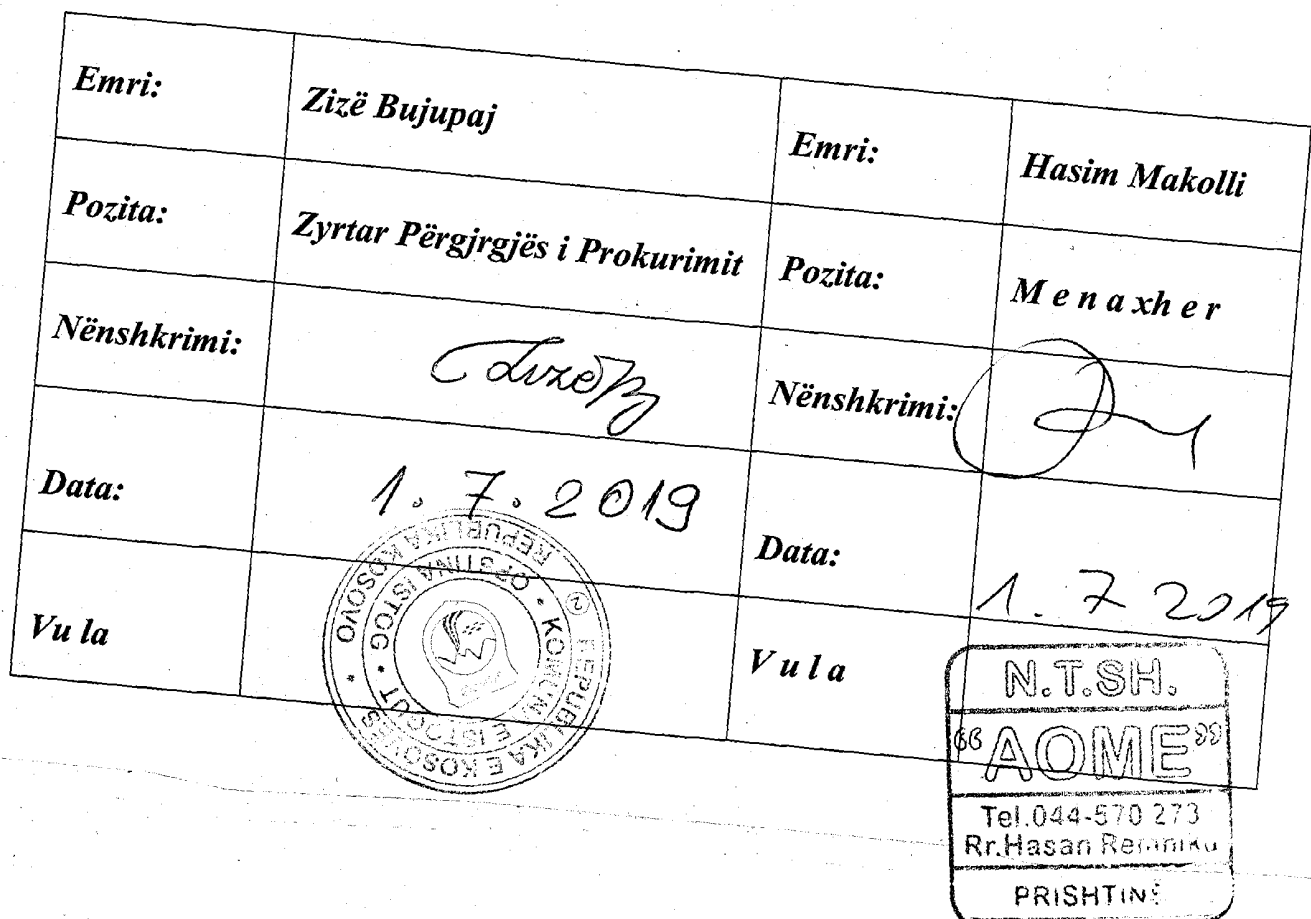 Emri: Zizë Bujupaj Emri: Hasim Makolli
Pozita: Zyrtar Përgjrgjës i Prokurimit Pozita: M e n a xh e r
Nënshkrimi: Nënshkrimi:
Data: 1. 7. 2019 Data: 1. 7 2019
Vu la V u l a
REPUBLIKA E KOSOVËS • REPUBLIKA KOSOVO •
KOMUNA E ISTOGUT • OPŠTINA ISTOG •
2
N.T.SH.
"AOME"
Tel.044-570 273
Rr.Hasan
PRISHTINË